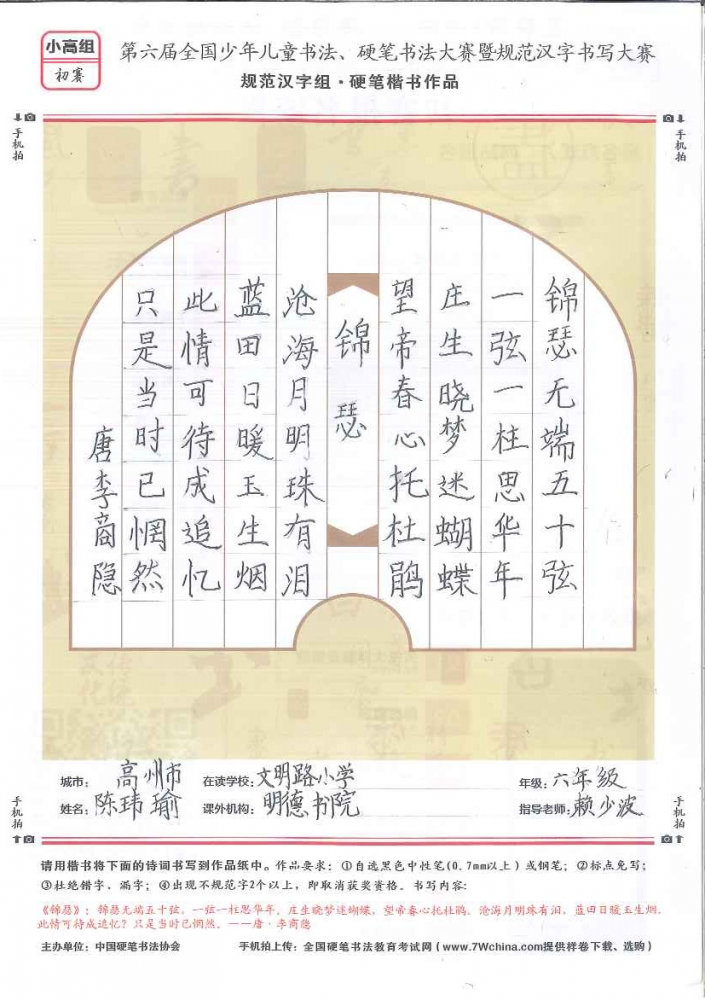 小高组
初赛
第六届全国少年儿童书法、硬笔书法大赛暨规范汉字书写大赛
规范汉字组·硬笔楷书作品
手机拍
手机拍
锦瑟无端五十弦
一弦一柱思华年
庄生晓梦迷蝴蝶
望帝春心托杜鹃
锦瑟
沧海月明珠有泪
蓝田日暖玉生烟
此情可待成追忆
只是当时已惘然
唐李商隐
城市：高州市 在读学校：文明路小学 年级：六年级
姓名：陈玮瑜 课外机构：明德书院 指导老师：赖少波
手机拍
手机拍
请用楷书将下面的诗词书写到作品纸中。作品要求：①自选黑色中性笔(0.7mm以上)或钢笔；②标点免写；
③杜绝错字、漏字；④出现不规范字2个以上，即取消获奖资格。书写内容：
《锦瑟》：锦瑟无端五十弦，一弦一柱思华年。庄生晓梦迷蝴蝶，望帝春心托杜鹃。沧海月明珠有泪，蓝田日暖玉生烟。
此情可待成追忆？只是当时已惘然。——唐·李商隐
主办单位：中国硬笔书法协会 手机拍上传：全国硬笔书法教育考试网（www.7Wchina.com提供样卷下载、选购）